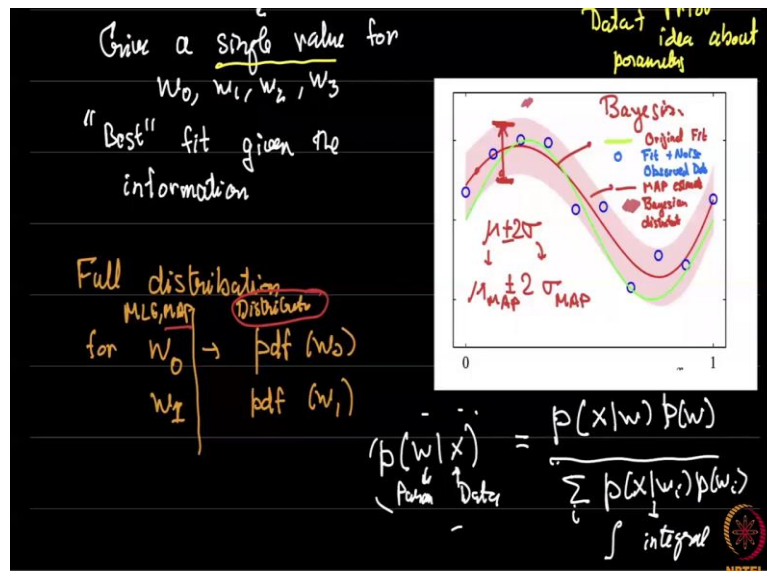 Give a single value for
w0, w1, w2, w3
"Best" fit given the
information
Data +
idea about
Bayesia.
Original Fit
Fit + Noise
Observed Dat
MAP
Bayesian
μ±2σ
μMAP ± 2 σMAP
0
1
Full distribution
MLE, MAP
for w0 → pdf (w0)
w1 pdf (w1)
p(w|x) = p(x|w) p(w)
Σi p(x|wi) p(wi)
Param Data
∫ integral
NPTEL